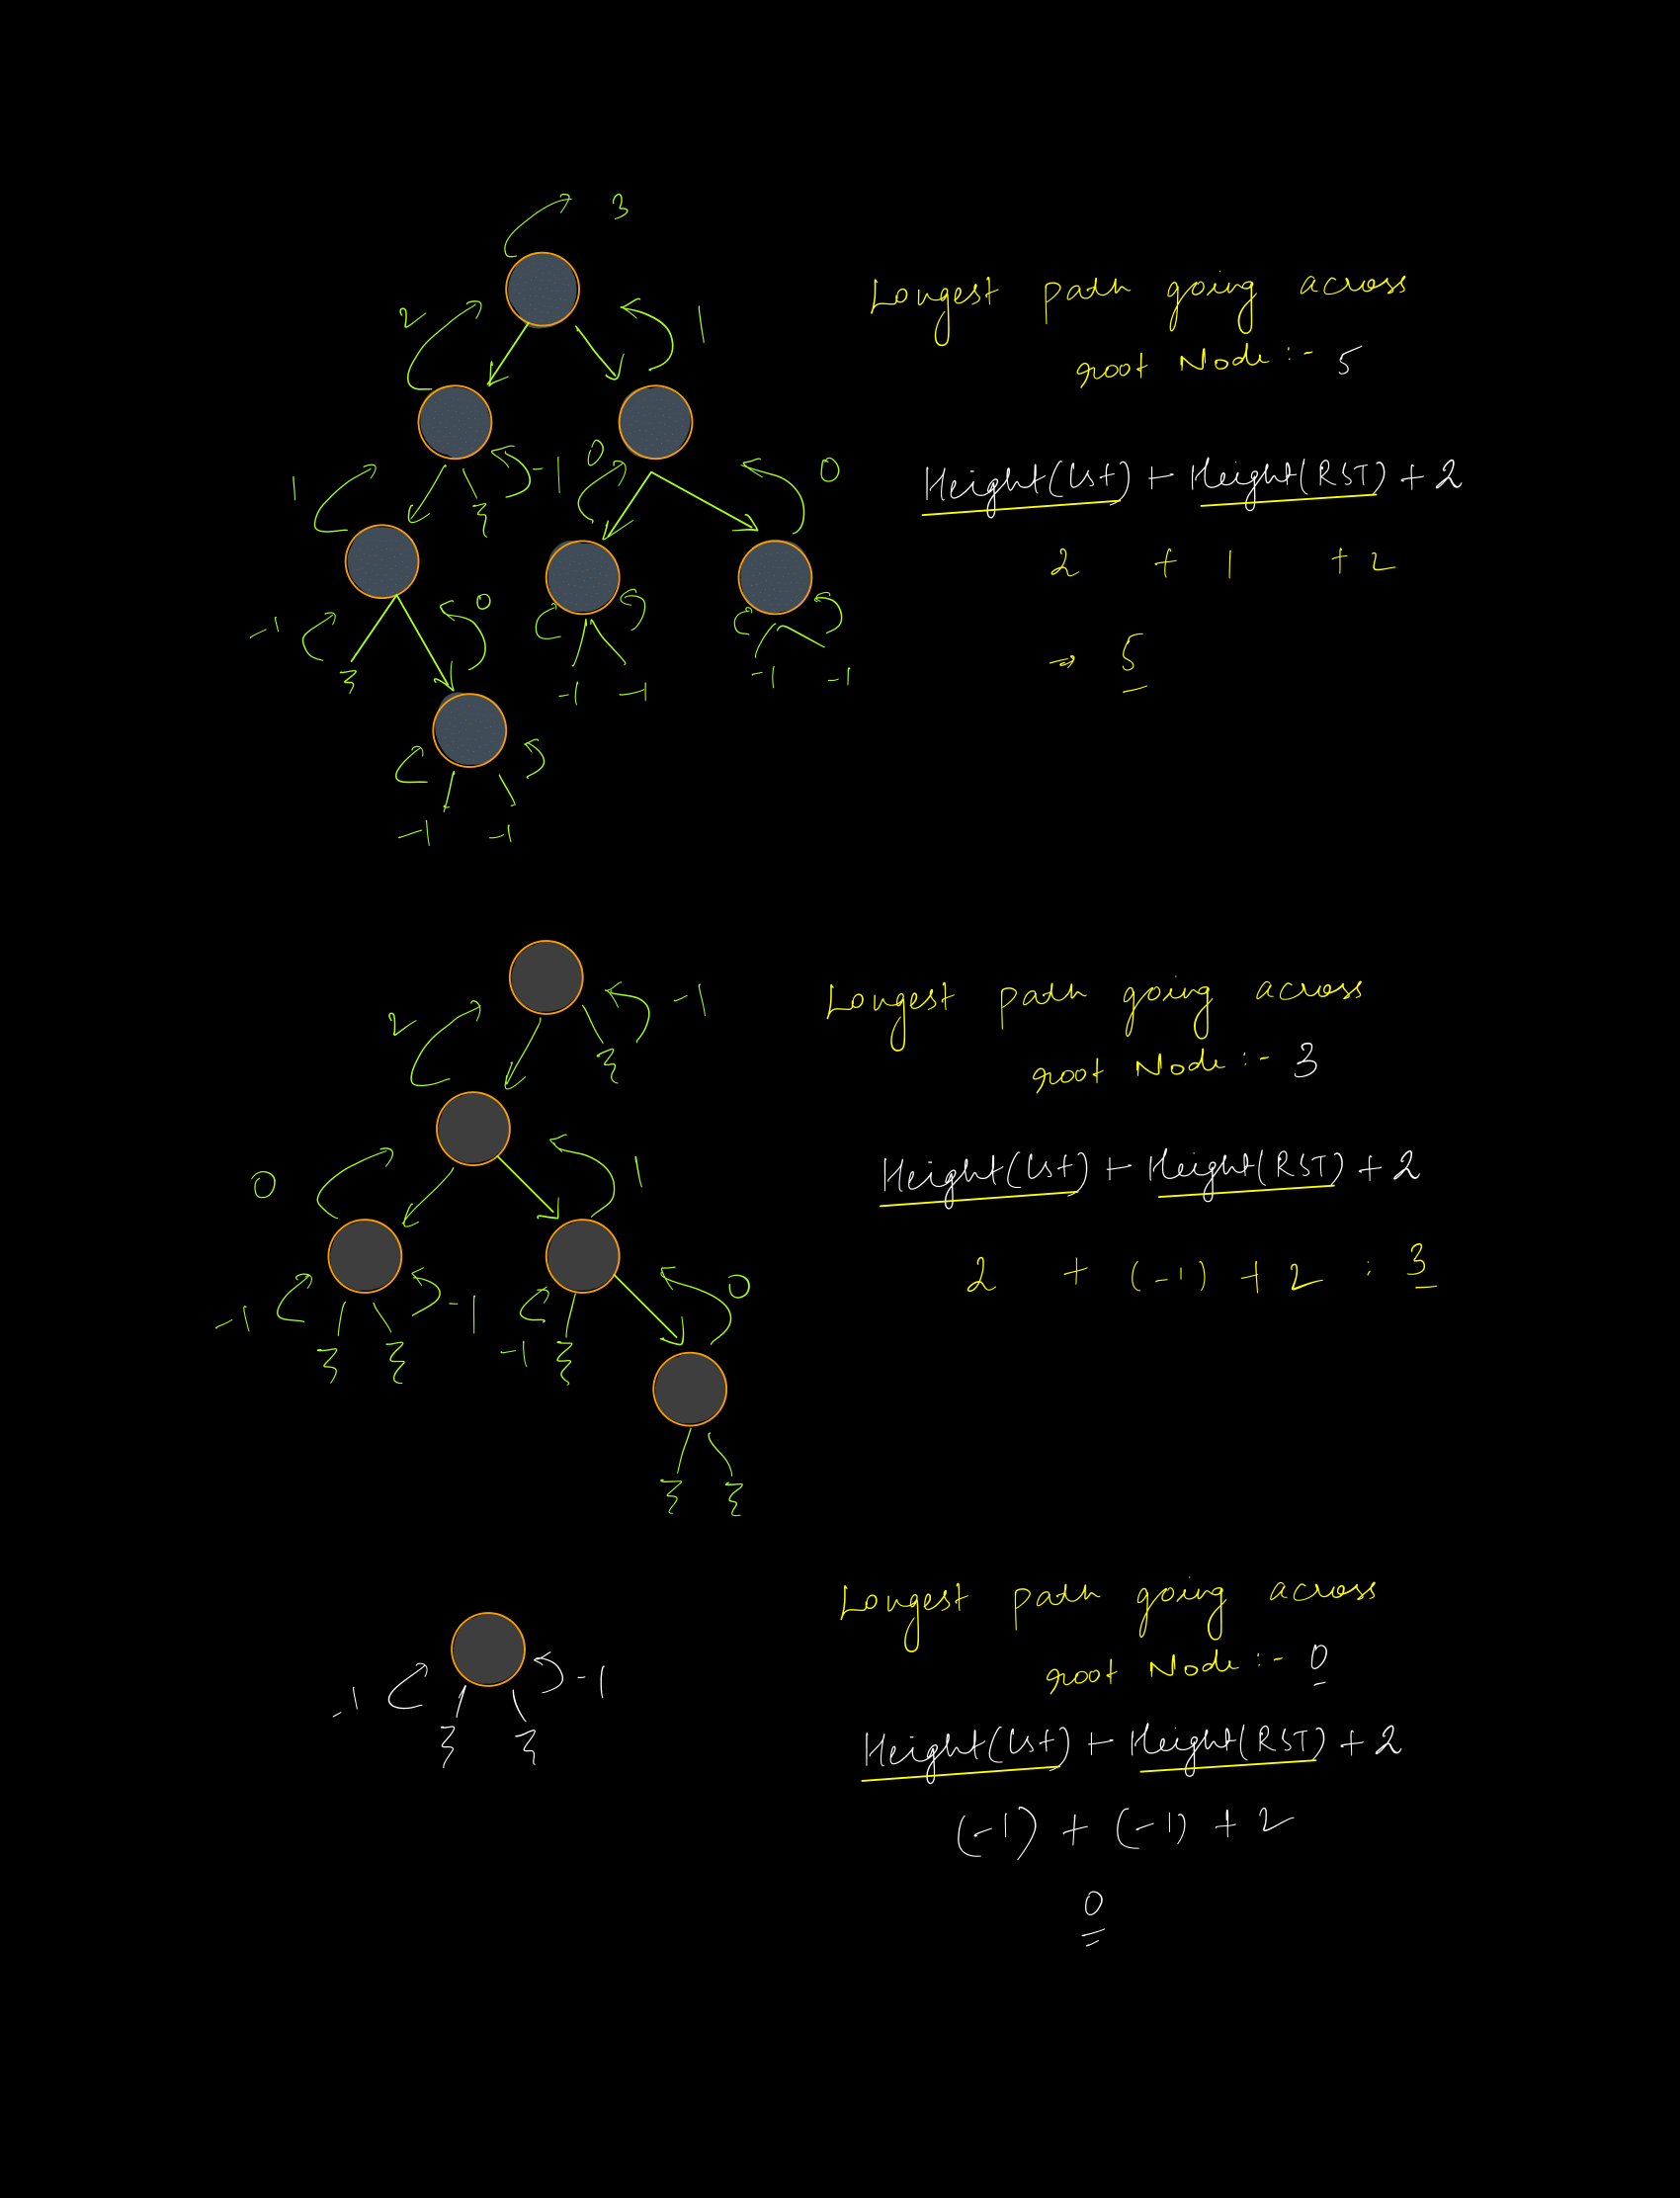 3
2
1
Longest path going across
root Node :- 5
1
-1
0
0
Height(LST) + Height(RST) + 2
2 + 1 + 2
-1
0
-1 -1
-1 -1
⇒ 5
-1 -1
2
-1
Longest path going across
root Node :- 3
0
1
Height(LST) + Height(RST) + 2
-1
-1
-1
0
2 + (-1) + 2 : 3
Longest path going across
root Node :- 0
-1
-1
Height(LST) + Height(RST) + 2
(-1) + (-1) + 2
0